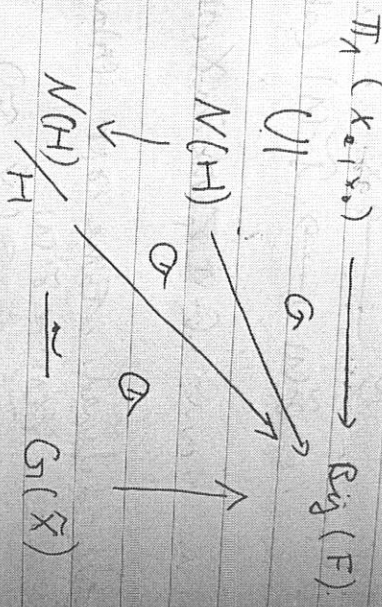 π₁ (X, x₀) → Bij (F).
∪| ↺
N(H) ↺
↓ ↺
N(H)/H ≃ G(X̃)